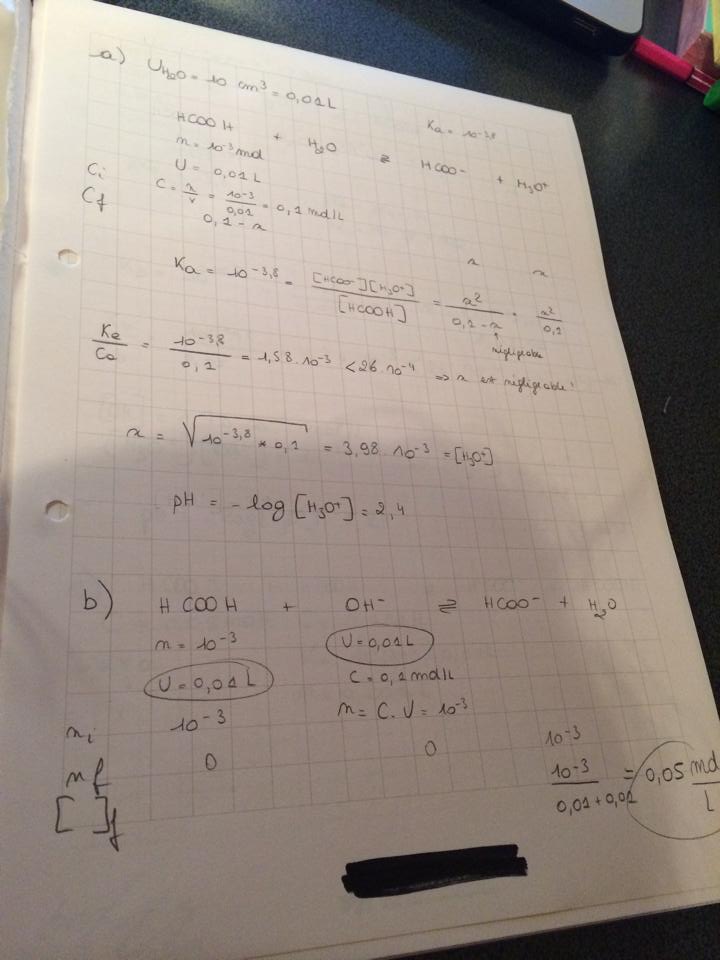 a) U H₂O = 10 cm³ = 0,01L
Ka = 10⁻³,⁸
HCOOH + H₂O ⇌ HCOO⁻ + H₃O⁺
n = 10⁻³ mol
U = 0,01 L
Ci C = n/v = 10⁻³/0,01 = 0,1 mol/L
Cf 0,1 - x x x
Ka = 10⁻³,⁸ = [HCOO⁻][H₃O⁺]/[HCOOH] = x²/(0,1 - x) = x²/0,1
↑ négligeable
Ka/Ca = 10⁻³,⁸/0,1 = 1,58 . 10⁻³ < 26 . 10⁻⁴ => x est négligeable !
x = √(10⁻³,⁸ * 0,1) = 3,98 . 10⁻³ = [H₃O⁺]
pH = - log [H₃O⁺] = 2,4
b) HCOOH + OH⁻ ⇌ HCOO⁻ + H₂O
n = 10⁻³ U = 0,01 L
U = 0,01 L C = 0,1 mol/L
ni 10⁻³ n = C . U = 10⁻³
nf 0 0 10⁻³
[ ]f 10⁻³/(0,01 + 0,01) = 0,05 mol/L